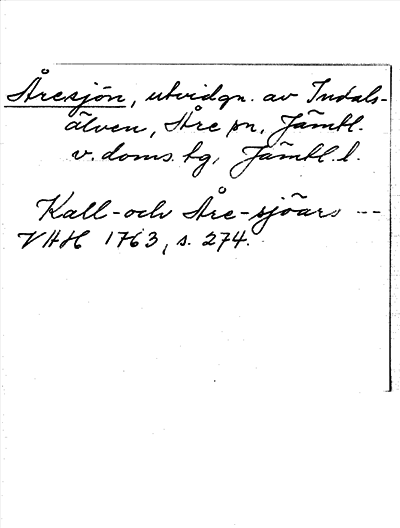 Åresjön, utvidgn. av Indals-
älven, Åre sn, Jämtl.
v. doms. tg, Jämtl. l.
Kall- och Åre-sjöars ---
VHH 1763, s. 274.